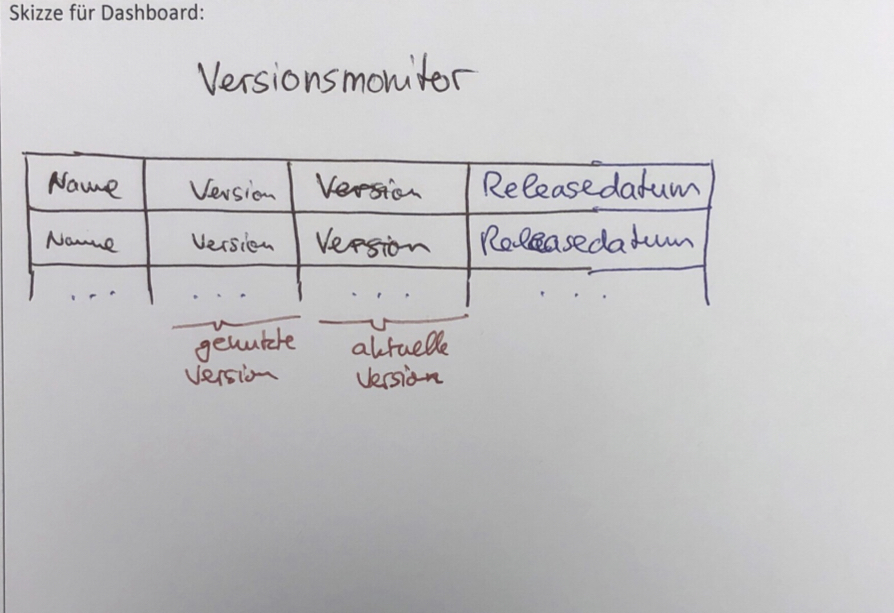 Skizze für Dashboard:
Versionsmonitor
Name Version Version Releasedatum
Name Version Version Releasedatum
... ... ... ...
genutzte aktuelle
Version Version